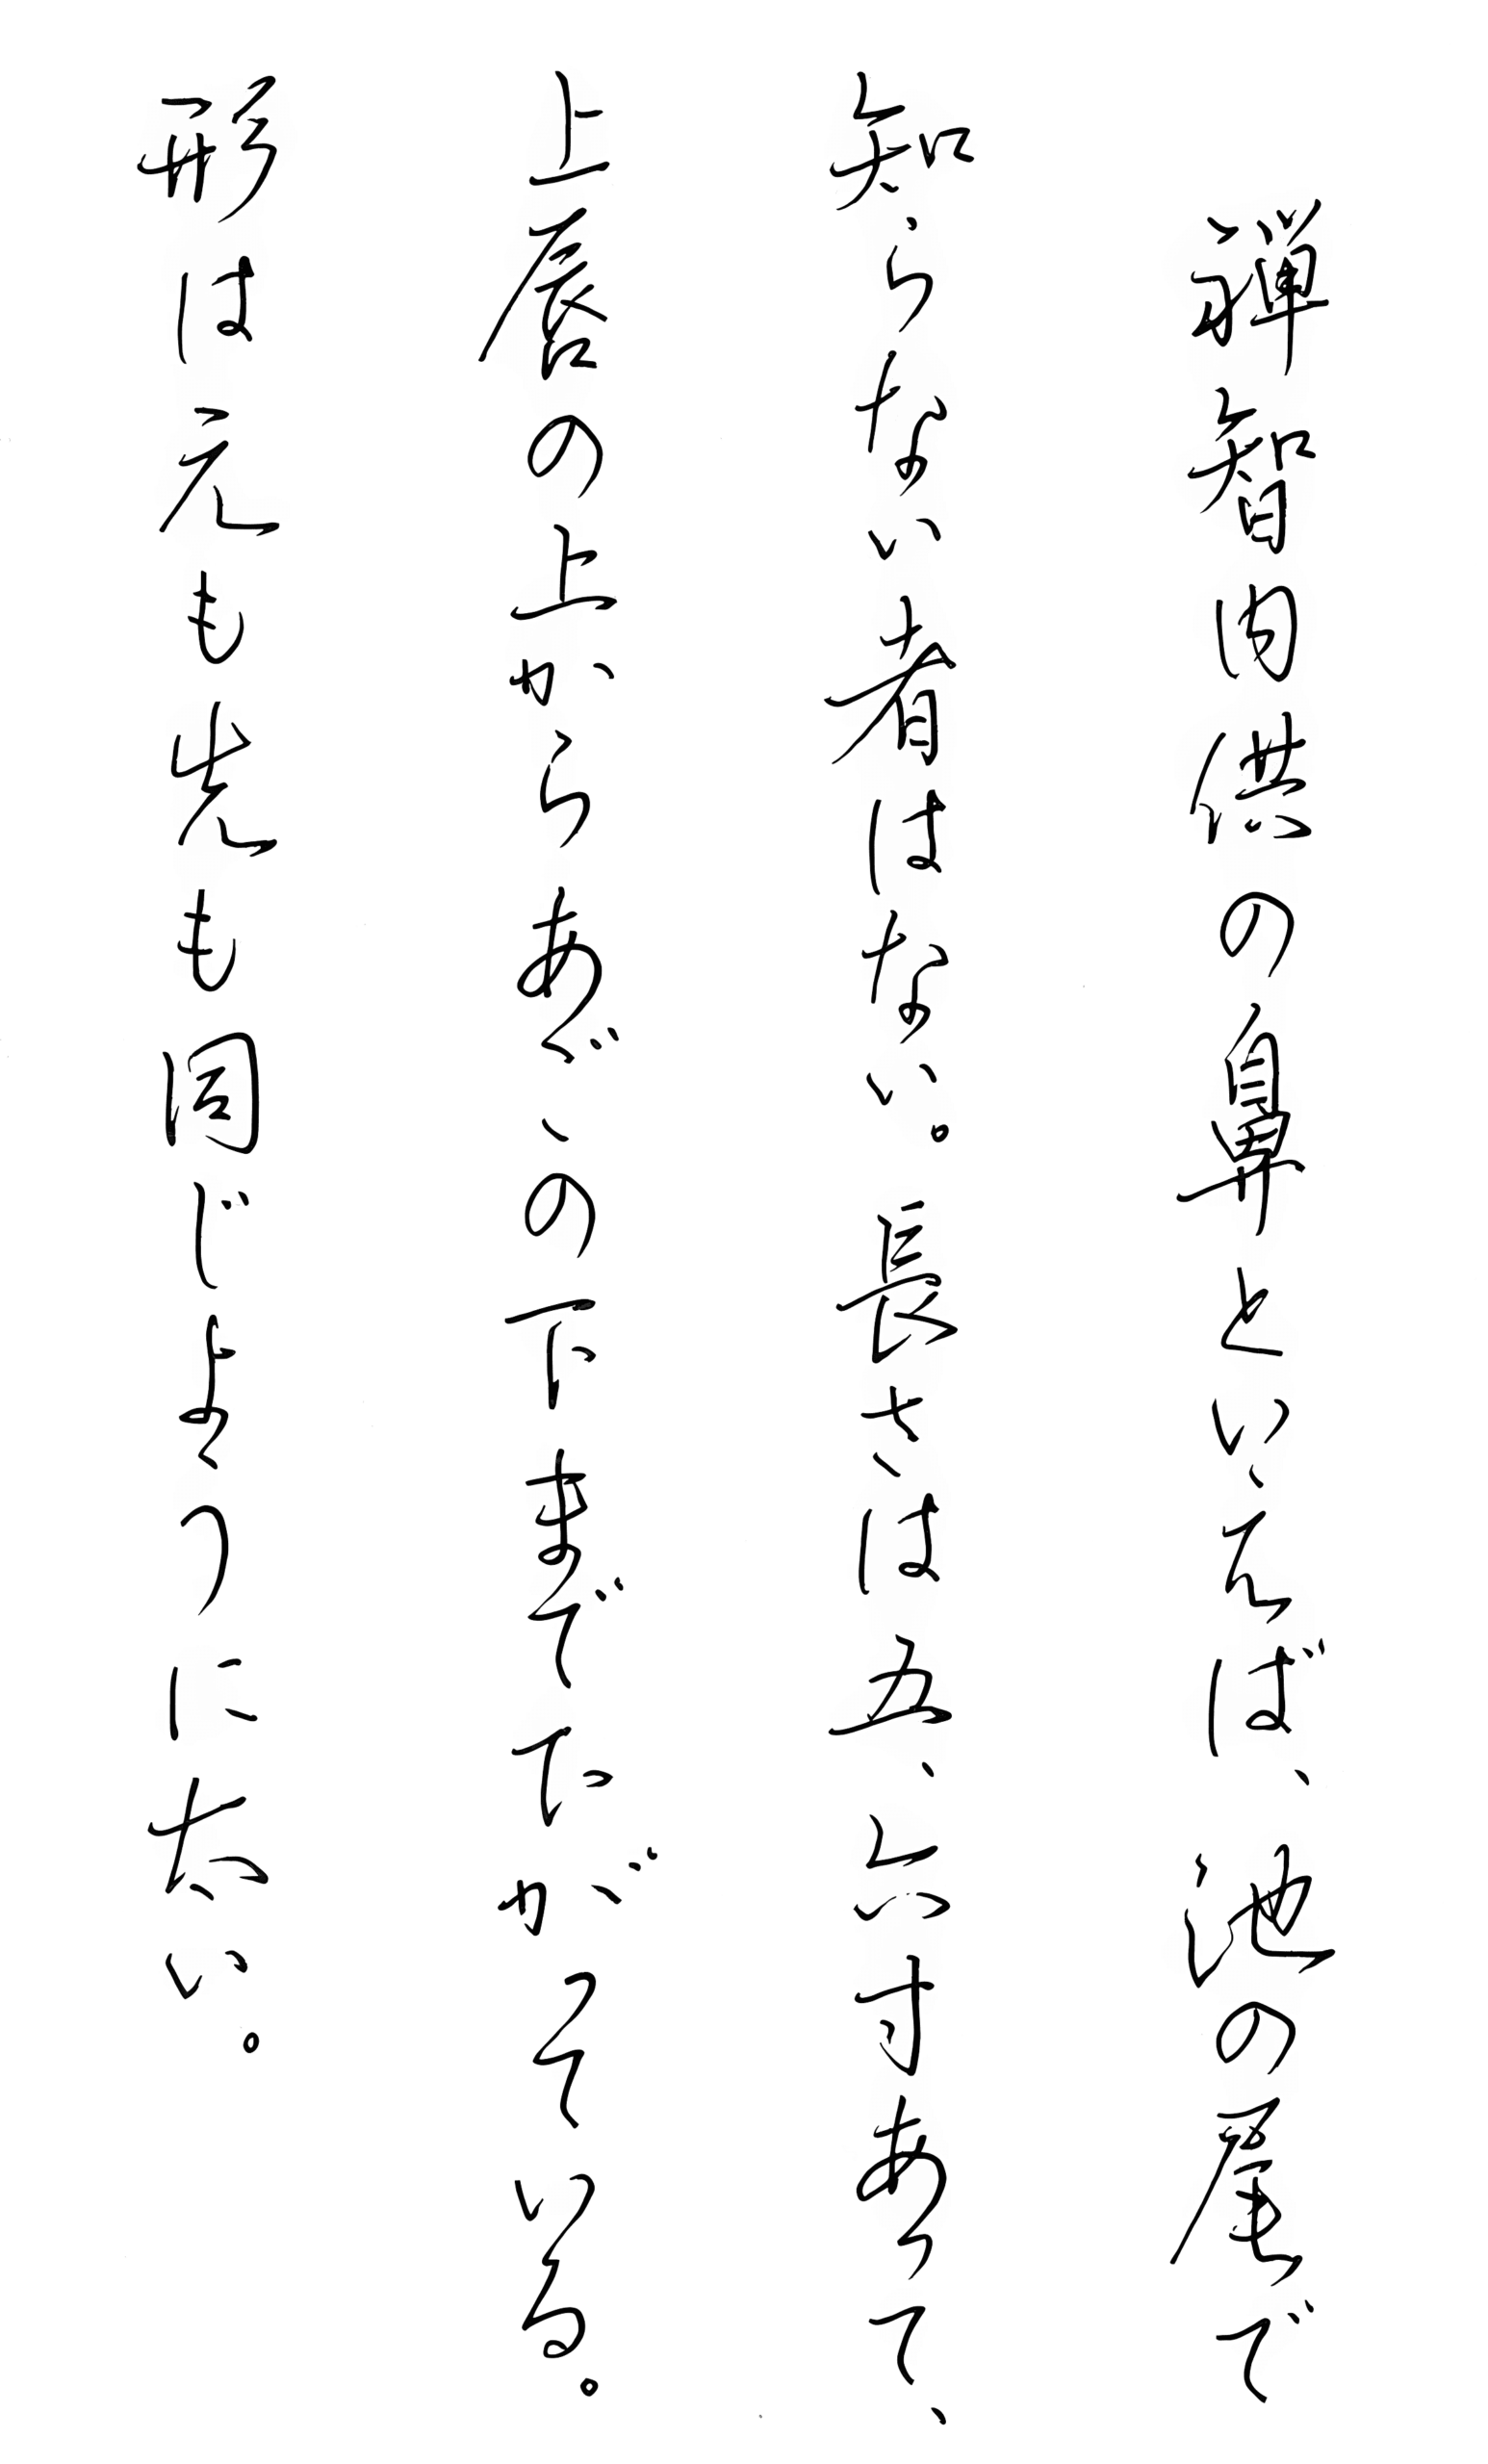 禅智内供の鼻といえば、池の尾で
知らない者はない。長さは五、六寸あって、
上唇の上からあごの下までたがそいる。
形は元も先も同じように太い。